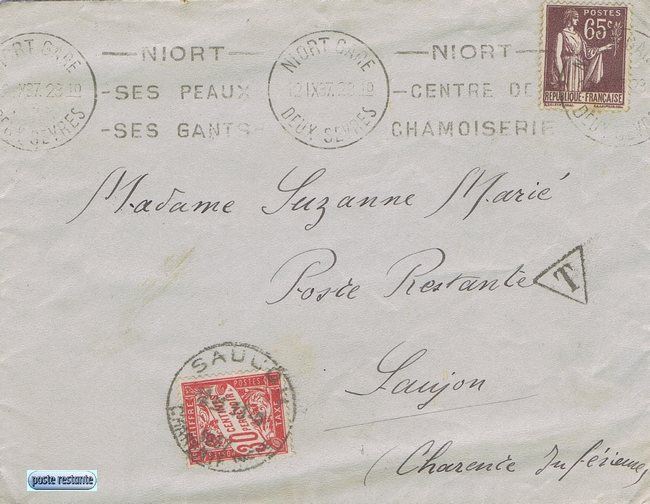 NIORT GARE
DEUX SEVRES
—NIORT—
—SES PEAUX
—SES GANTS—
NIORT GARE
12 IX 37. 23 10
DEUX SEVRES
—NIORT—
—CENTRE DE
CHAMOISERIE
POSTES
65c
REPUBLIQUE FRANÇAISE
Madame Suzanne Marié
Poste Restante
T
Saujon
(Charence Inférieure)
SAUJON
POSTES
30
CENTIMES
A PERCEVOIR
CHIFFRE
TAXE
poste restante